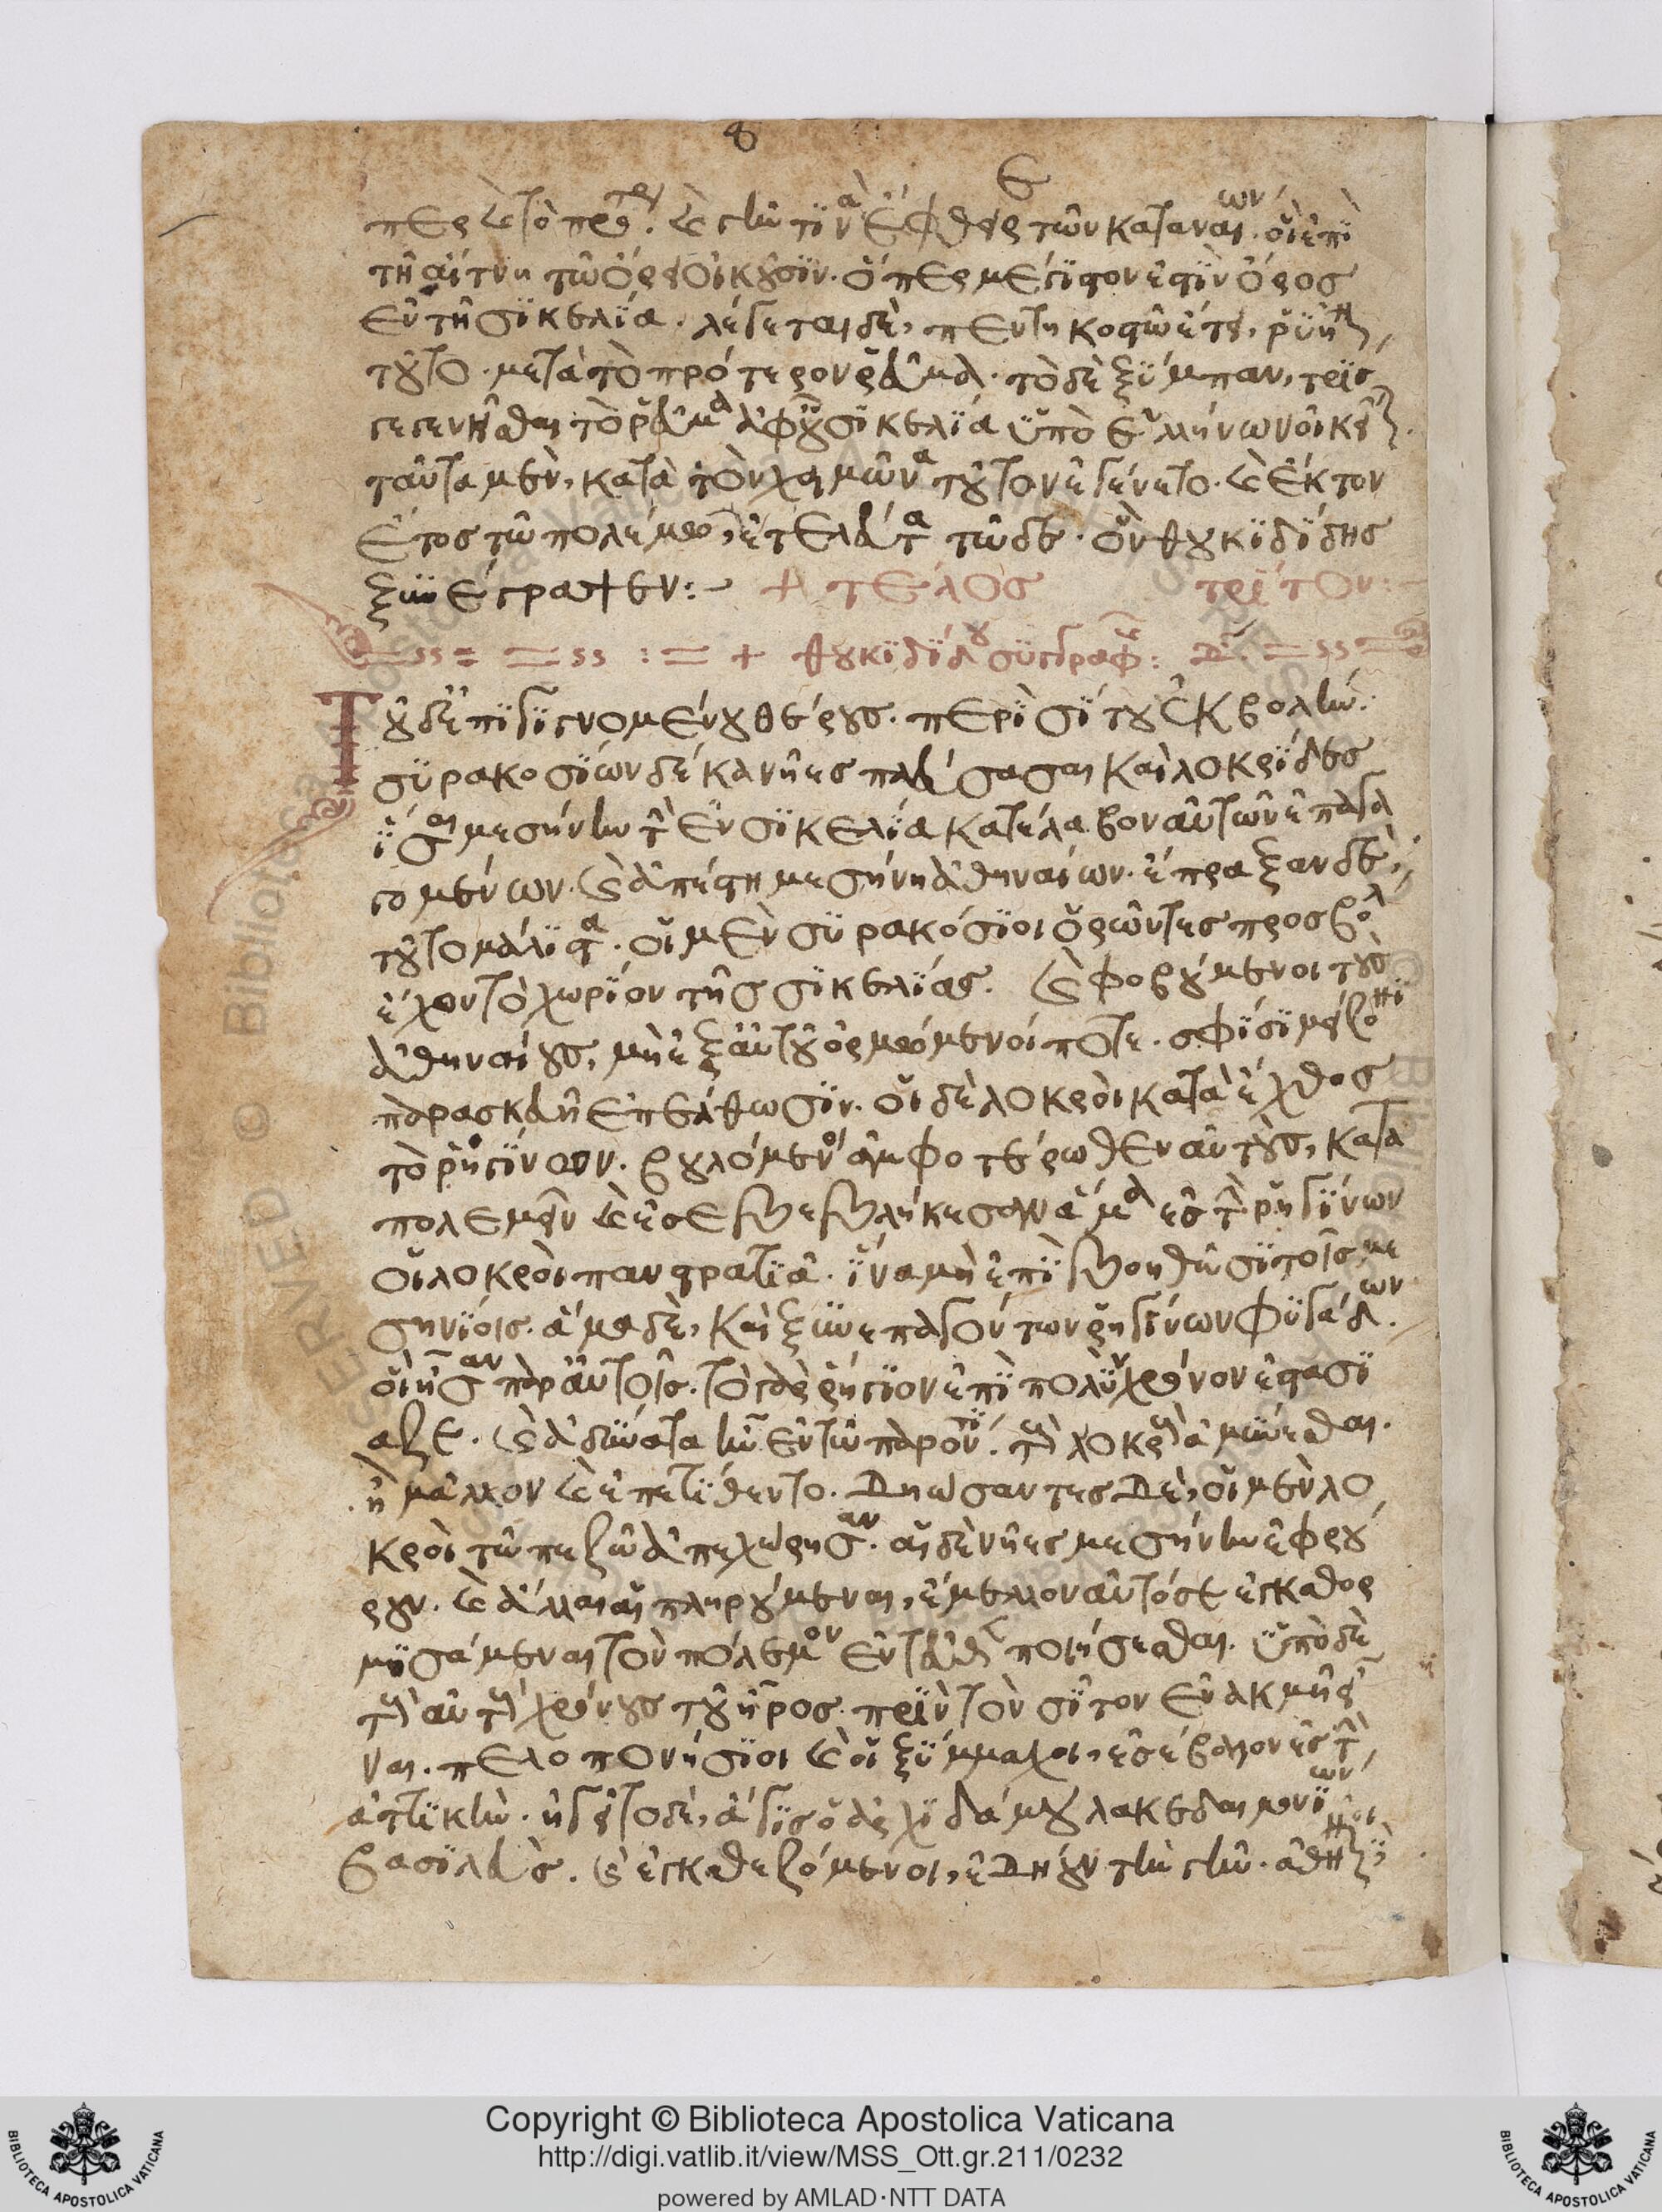 περ καὶ τὸ πρότερον. καὶ γῆν τινὰ ἔφθειρε τῶν καταναίων. οἳ ἐπὶ
τῆ αἴτνη τῶ ὄρει οἰκοῦσιν. ὅπερ μέγιστον ἐστὶν ὄρος
ἐν τῆ σικελία. λέγεται δὲ, πεντηκοστῶ ἔτει, ῥυῆναι
τοῦτο. μετὰ τὸ πρότερον ῥεῦμα. τὸ δὲ ξύμπαν, τρὶς
γεγενῆσθαι τὸ ῥεῦμα ἀφ' οὗ σικελία ὑπὸ ἑλλήνων οἰκεῖται.
ταῦτα μὲν, κατὰ τὸν χειμῶνα τοῦτον ἐγένετο. καὶ ἕκτον
ἔτος τῶ πολέμω, ἐτελεύτα τῶδε. ὃν θουκιδίδης
ξυνέγραψεν:
+ τέλος τρίτον:
+ θουκιδίδου συγγραφῆς: Δ.
Τοῦ δ' ἐπιγιγνομένου θέρους. περὶ σίτου ἐκβολὴν.
συρακοσίων δέκα νῆες πλεύσασαι καὶ λοκρίδες
ἴσαι μεσήνην τὴν ἐν σικελία κατέλαβον αὐτῶν ἐπαγα
γομένων. καὶ ἀπέστη μεσήνη ἀθηναίων. ἔπραξαν δὲ
τοῦτο μάλιστα. οἱ μὲν συρακόσιοι ὁρῶντες προσβολὴν
ἔχον τὸ χωρίον τῆς σικελίας. καὶ φοβούμενοι τοὺς
ἀθηναίους, μὴ ἐξ αὐτοῦ ὁρμώμενοί ποτε. σφίσι μείζονι
παρασκευῆ ἐπέλθωσιν. οἱ δὲ λοκροὶ κατὰ ἔχθος
τὸ ῥηγίνων. βουλόμενοι ἀμφοτέρωθεν αὐτοὺς, κατα
πολεμεῖν καὶ ἐσεβεβλήκεσαν ἅμα ἐς τὴν ῥηγίνων
οἱ λοκροὶ πανστρατιᾶ. ἵνα μὴ ἐπιβοηθῶσι τοῖς με
σηνίοις. ἅμα δὲ, καὶ ξυνεπαγόντων ῥηγίνων φυγάδων.
οἳ ἦσαν παρ' αὐτοῖς. τὸ γὰρ ῥήγιον ἐπὶ πολὺν χρόνον ἐστασί
αζε. καὶ ἀδύνατα ἦν ἐν τῶ παρόντι. τοὺς λοκροὺς ἀμύνεσθαι.
ἧ μᾶλλον καὶ ἐπετίθεντο. Δηώσαντες Δὲ, οἱ μὲν λο
κροὶ τῶ πεζῶ ἀπεχώρησαν. αἱ δὲ νῆες μεσήνην ἐφρού
ρουν. καὶ ἄλλαι αἱ πληρούμεναι, ἔμελλον αὐτόσε ἐγκαθορ
μισάμεναι τὸν πόλεμον ἐντεῦθεν ποιήσεσθαι. ὑπὸ δὲ
τοὺς αὐτοὺς χρόνους τοῦ ἦρος. πρὶν τὸν σῖτον ἐν ἀκμῆ εἶ
ναι. πελοπονήσιοι καὶ οἱ ξύμμαχοι, ἐσέβαλον ἐς τὴν
ἀττικὴν. ἡγεῖτο δὲ, ἄγις ὁ ἀρχιδάμου λακεδαιμονίων
βασιλεὺς. καὶ ἐγκαθεζόμενοι, ἐΔήουν τὴν γῆν. ἀθηναῖοι
Copyright © Biblioteca Apostolica Vaticana
http://digi.vatlib.it/view/MSS_Ott.gr.211/0232
powered by AMLAD·NTT DATA